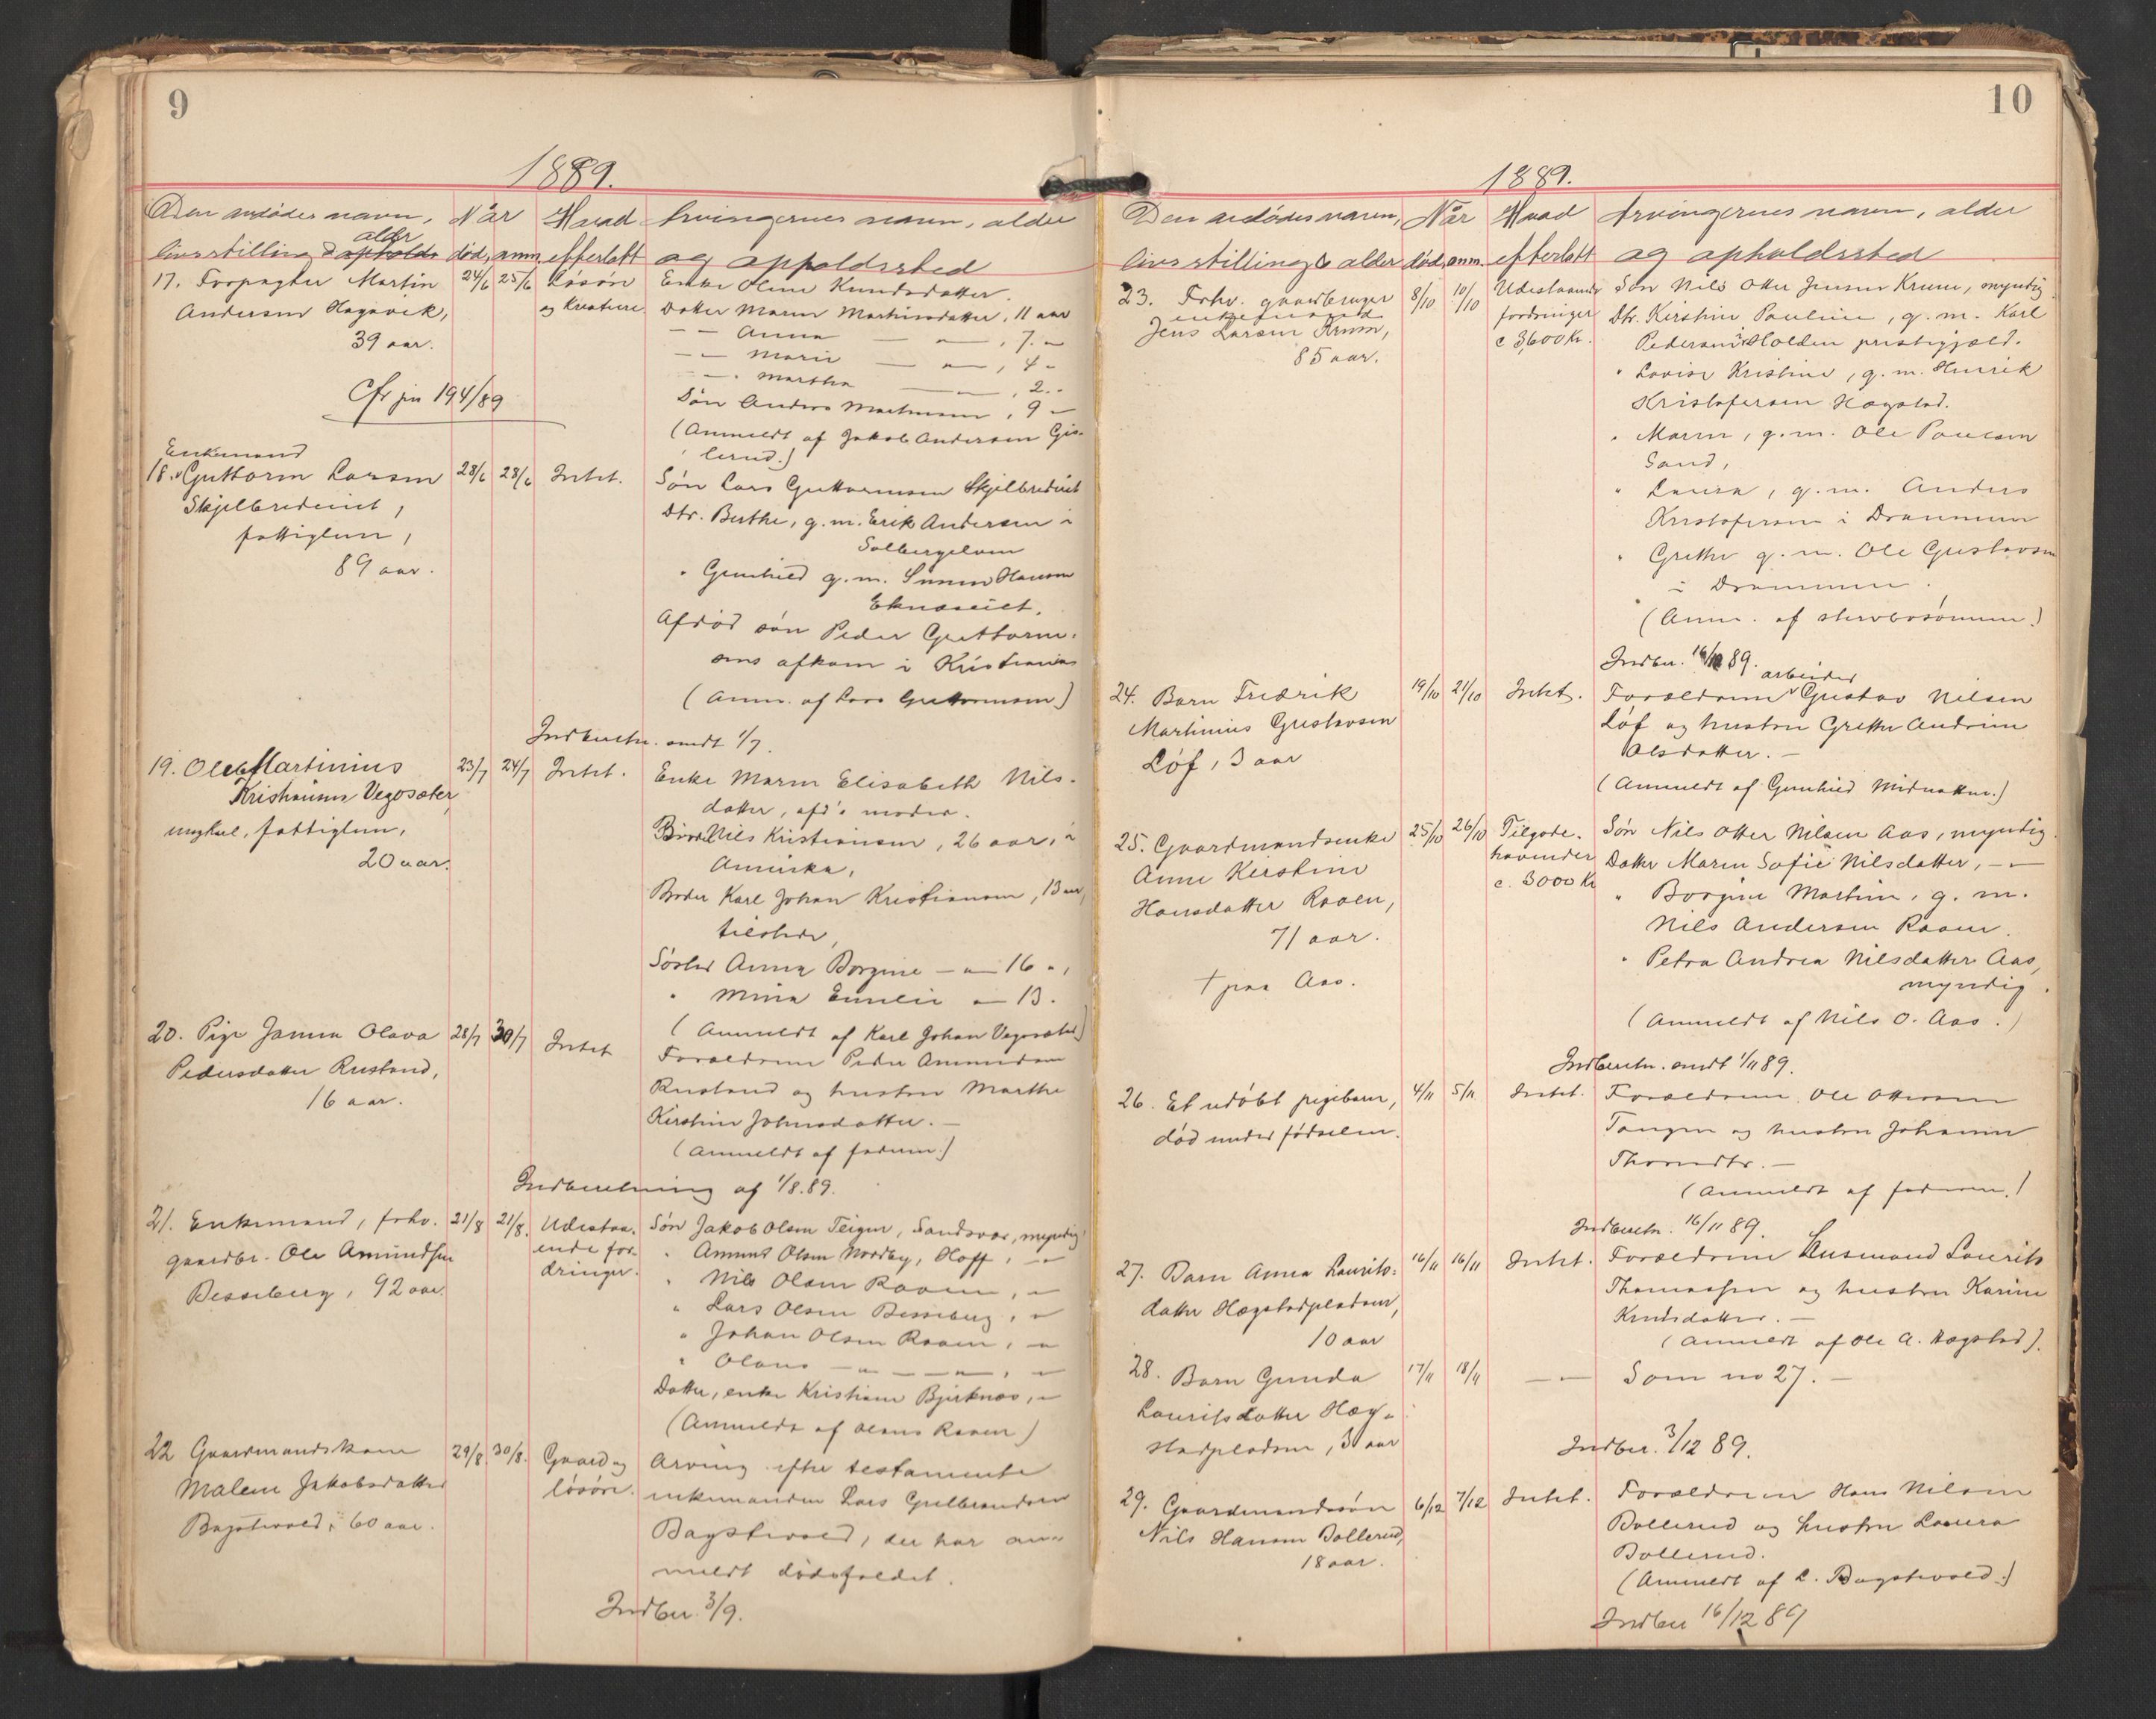 9
1889.
Den avdødes navn, Når Hvad Arvingernes navn, alder
alder
livsstilling & ophold død, anm. efterlatt og oppholdssted
17. Forpagter Martin 24/6 25/6 Løsøre Enke Oline Knudsdatter.
Andersen Hagavik, og kreature. Datter Maren Martinsdatter, 11 aar
39 aar. — — Anna — " —, 7. "
— — Marie — " —, 4 "
— — Martha — —, 2 "
Cfr jnr 194/89
Søn Anders Martinsen, 9 "
(Anmeldt af Jakob Andersen Gis-
lerud.)
Enkemand
18. Guttorm Larsen 28/6 28/6 Intet. Søn Lars Guttormsen Skjelbredeiet
Skjelbredeiet, Dtr. Berthe, g. m. Erik Andersen i
fattiglem, Solbergelven
89 aar. " Gunhild g. m. Simen Hansen
Eknæseiet.
Afdød søn Peder Guttorm-
sens afkom i Kristiania
(Anm. af Lars Guttormsen)
Indberetn. sendt 1/7.
19. Ole Martinius 23/7 24/7 Intet. Enke Maren Elisabeth Nils-
Kristiansen Vegosæter datter, afd's moder.
ungkarl, fattiglem, Broder Nils Kristiansen, 26 aar, i
20 aar. Amerika,
Broder Karl Johan Kristiansen, 13 aar,
tilstede,
Søster Anna Borgine — " 16 ",
" Mina Emelie " 13.
(Anmeldt af Karl Johan Vegosæter)
20. Pige Janna Olava 28/7 30/7 Intet Forældrene Peder Amundsen
Pedersdatter Rustand, Rustand og hustru Marthe
16 aar. Kirstine Johnsdatter. —
(Anmeldt af faderen.)
Indberetning af 1/8.89.
21. Enkemand, forhv. 21/8 21/8. Udestaa- Søn Jakob Olsen Teigen, Sandsvær, myndig
gaardbr. Ole Amundsen ende for- " Amund Olsen Nordby, Hoff, — "
Besseberg, 92 aar. dringer. " Nils Olsen Raaen, "
" Lars Olsen Besseberg, "
" Johan Olsen Raaen, "
" Olaus — " — — " —, "
Datter, enke Kristiane Bjerknæs, "
(Anmeldt af Olaus Raaen)
22 Gaardmandskone 29/8 30/8. Gaard og Arving efter testamente
Malene Jakobsdatter løsøre. enkemanden Lars Gulbrandsen
Bagstevold, 60 aar. Bagstevold, der har an-
meldt dødsfaldet.
Indber. 3/9.
10
1889.
Den avdødes navn, Når Hvad Arvingernes navn, alder
livsstilling & alder død, anm. efterlatt og opholdssted
23. Forhv. gaardbruger 8/10 10/10 Udestaaende Søn Nils Otter Jensen Krune, myndig
enkemand fordringer Dtr. Kirstine Pauline, g. m. Karl
Jens Larsen Krune, c 3,600 Kr. Pedersen i Holden prestegjæld.
85 aar. " Lovise Kristine, g. m. Henrik
Kristofersen Hægstad.
" Maren, g. m. Ole Paulsen
Sand,
" Laura, g. m. Anders
Kristofersen i Drammen
" Grethe g. m. Ole Gustavsen
i Drammen.
(Anm. af stervbosønnen.)
Indber. 16/10 89.
arbeider
24. Barn Fredrik 19/10 21/10 Intet. Forældrene Gustav Nilsen
Martinius Gustavsen Løf og hustru Grethe Andrine
Løf, 3 aar Olsdatter. —
(Anmeldt af Gunhild Midnatten.)
25. Gaardmandsenke 25/10 26/10 Tilgode- Søn Nils Otter Nilsen Aas, myndig.
Anne Kirstine havender Datter Maren Sofie Nilsdatter, — "
Hansdatter Raaen, c. 3000 Kr " Borgine Martine, g. m.
71 aar. Nils Andersen Raaen.
† paa Aas. " Petra Andrea Nilsdatter Aas,
myndig.
(Anmeldt af Nils O. Aas.)
Indberetn. sendt 1/11 89.
26. Et udøbt pigebarn, 4/11 5/11 Intet. Forældrene Ole Ottersen
død under fødselen. Tangen og hustru Johanne
Thorsdtr. —
(Anmeldt af faderen.)
Indberetn. 16/11 89.
27. Barn Anna Laurits- 16/11 16/11 Intet. Forældrene Husmand Laurits
datter Hægstadpladsen, Thomassen og hustru Karine
10 aar Knudsdatter. —
(Anmeldt af Ole A. Hægstad).
28. Barn Gunda 17/11 18/11 — — Som no 27. —
Lauritsdatter Hæg-
stadpladsen, 3 aar
Indber. 3/12 89.
29. Gaardmandssøn 6/12 7/12 Intet. Forældrene Hans Nilsen
Nils Hansen Bollerud, Bollerud og hustru Laura
18 aar. Bollerud.
(Anmeldt af L. Bagstevold.)
Indber 16/12 89